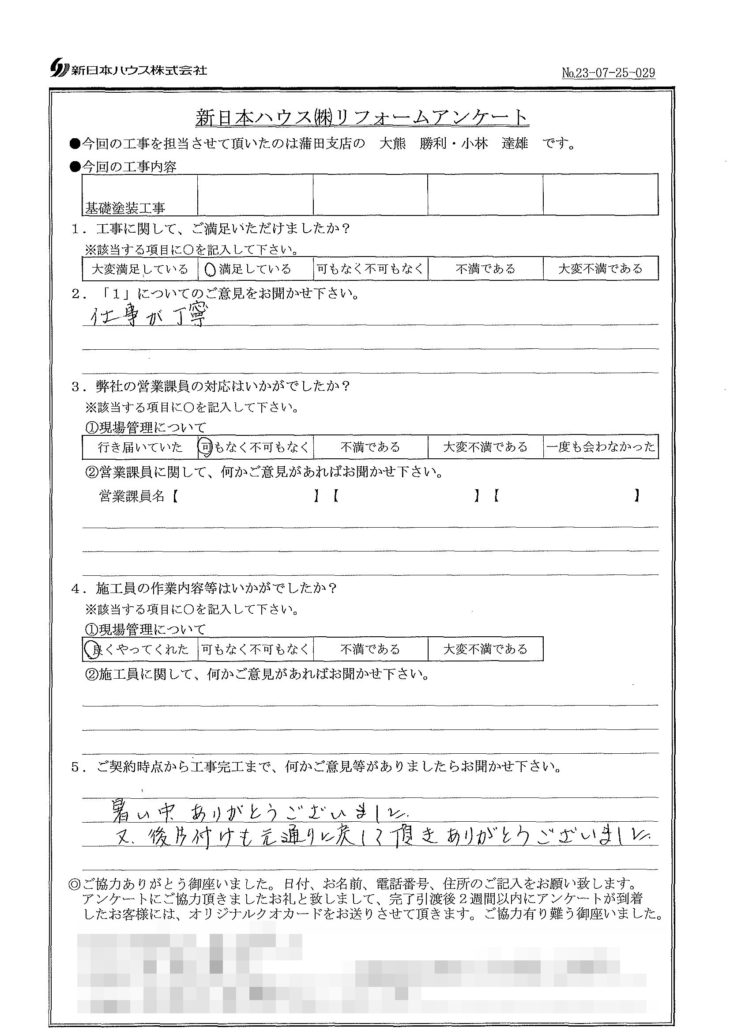 新日本ハウス株式会社
No.23-07-25-029
新日本ハウス㈱リフォームアンケート
●今回の工事を担当させて頂いたのは蒲田支店の 大熊 勝利・小林 達雄 です。
●今回の工事内容
基礎塗装工事
1．工事に関して、ご満足いただけましたか？
※該当する項目に○を記入して下さい。
大変満足している ○満足している 可もなく不可もなく 不満である 大変不満である
2．「1」についてのご意見をお聞かせ下さい。
仕事が丁寧
3．弊社の営業課員の対応はいかがでしたか？
※該当する項目に○を記入して下さい。
①現場管理について
行き届いていた 可もなく不可もなく 不満である 大変不満である 一度も会わなかった
②営業課員に関して、何かご意見があればお聞かせ下さい。
営業課員名【 】【 】【 】
4．施工員の作業内容等はいかがでしたか？
※該当する項目に○を記入して下さい。
①現場管理について
良くやってくれた 可もなく不可もなく 不満である 大変不満である
②施工員に関して、何かご意見があればお聞かせ下さい。
5．ご契約時点から工事完工まで、何かご意見等がありましたらお聞かせ下さい。
暑い中、ありがとうございました。
又、後片付けも元通りに戻して頂きありがとうございました。
◎ご協力ありがとう御座いました。日付、お名前、電話番号、住所のご記入をお願い致します。
アンケートにご協力頂きましたお礼と致しまして、完了引渡後２週間以内にアンケートが到着
したお客様には、オリジナルクオカードをお送りさせて頂きます。ご協力有り難う御座いました。